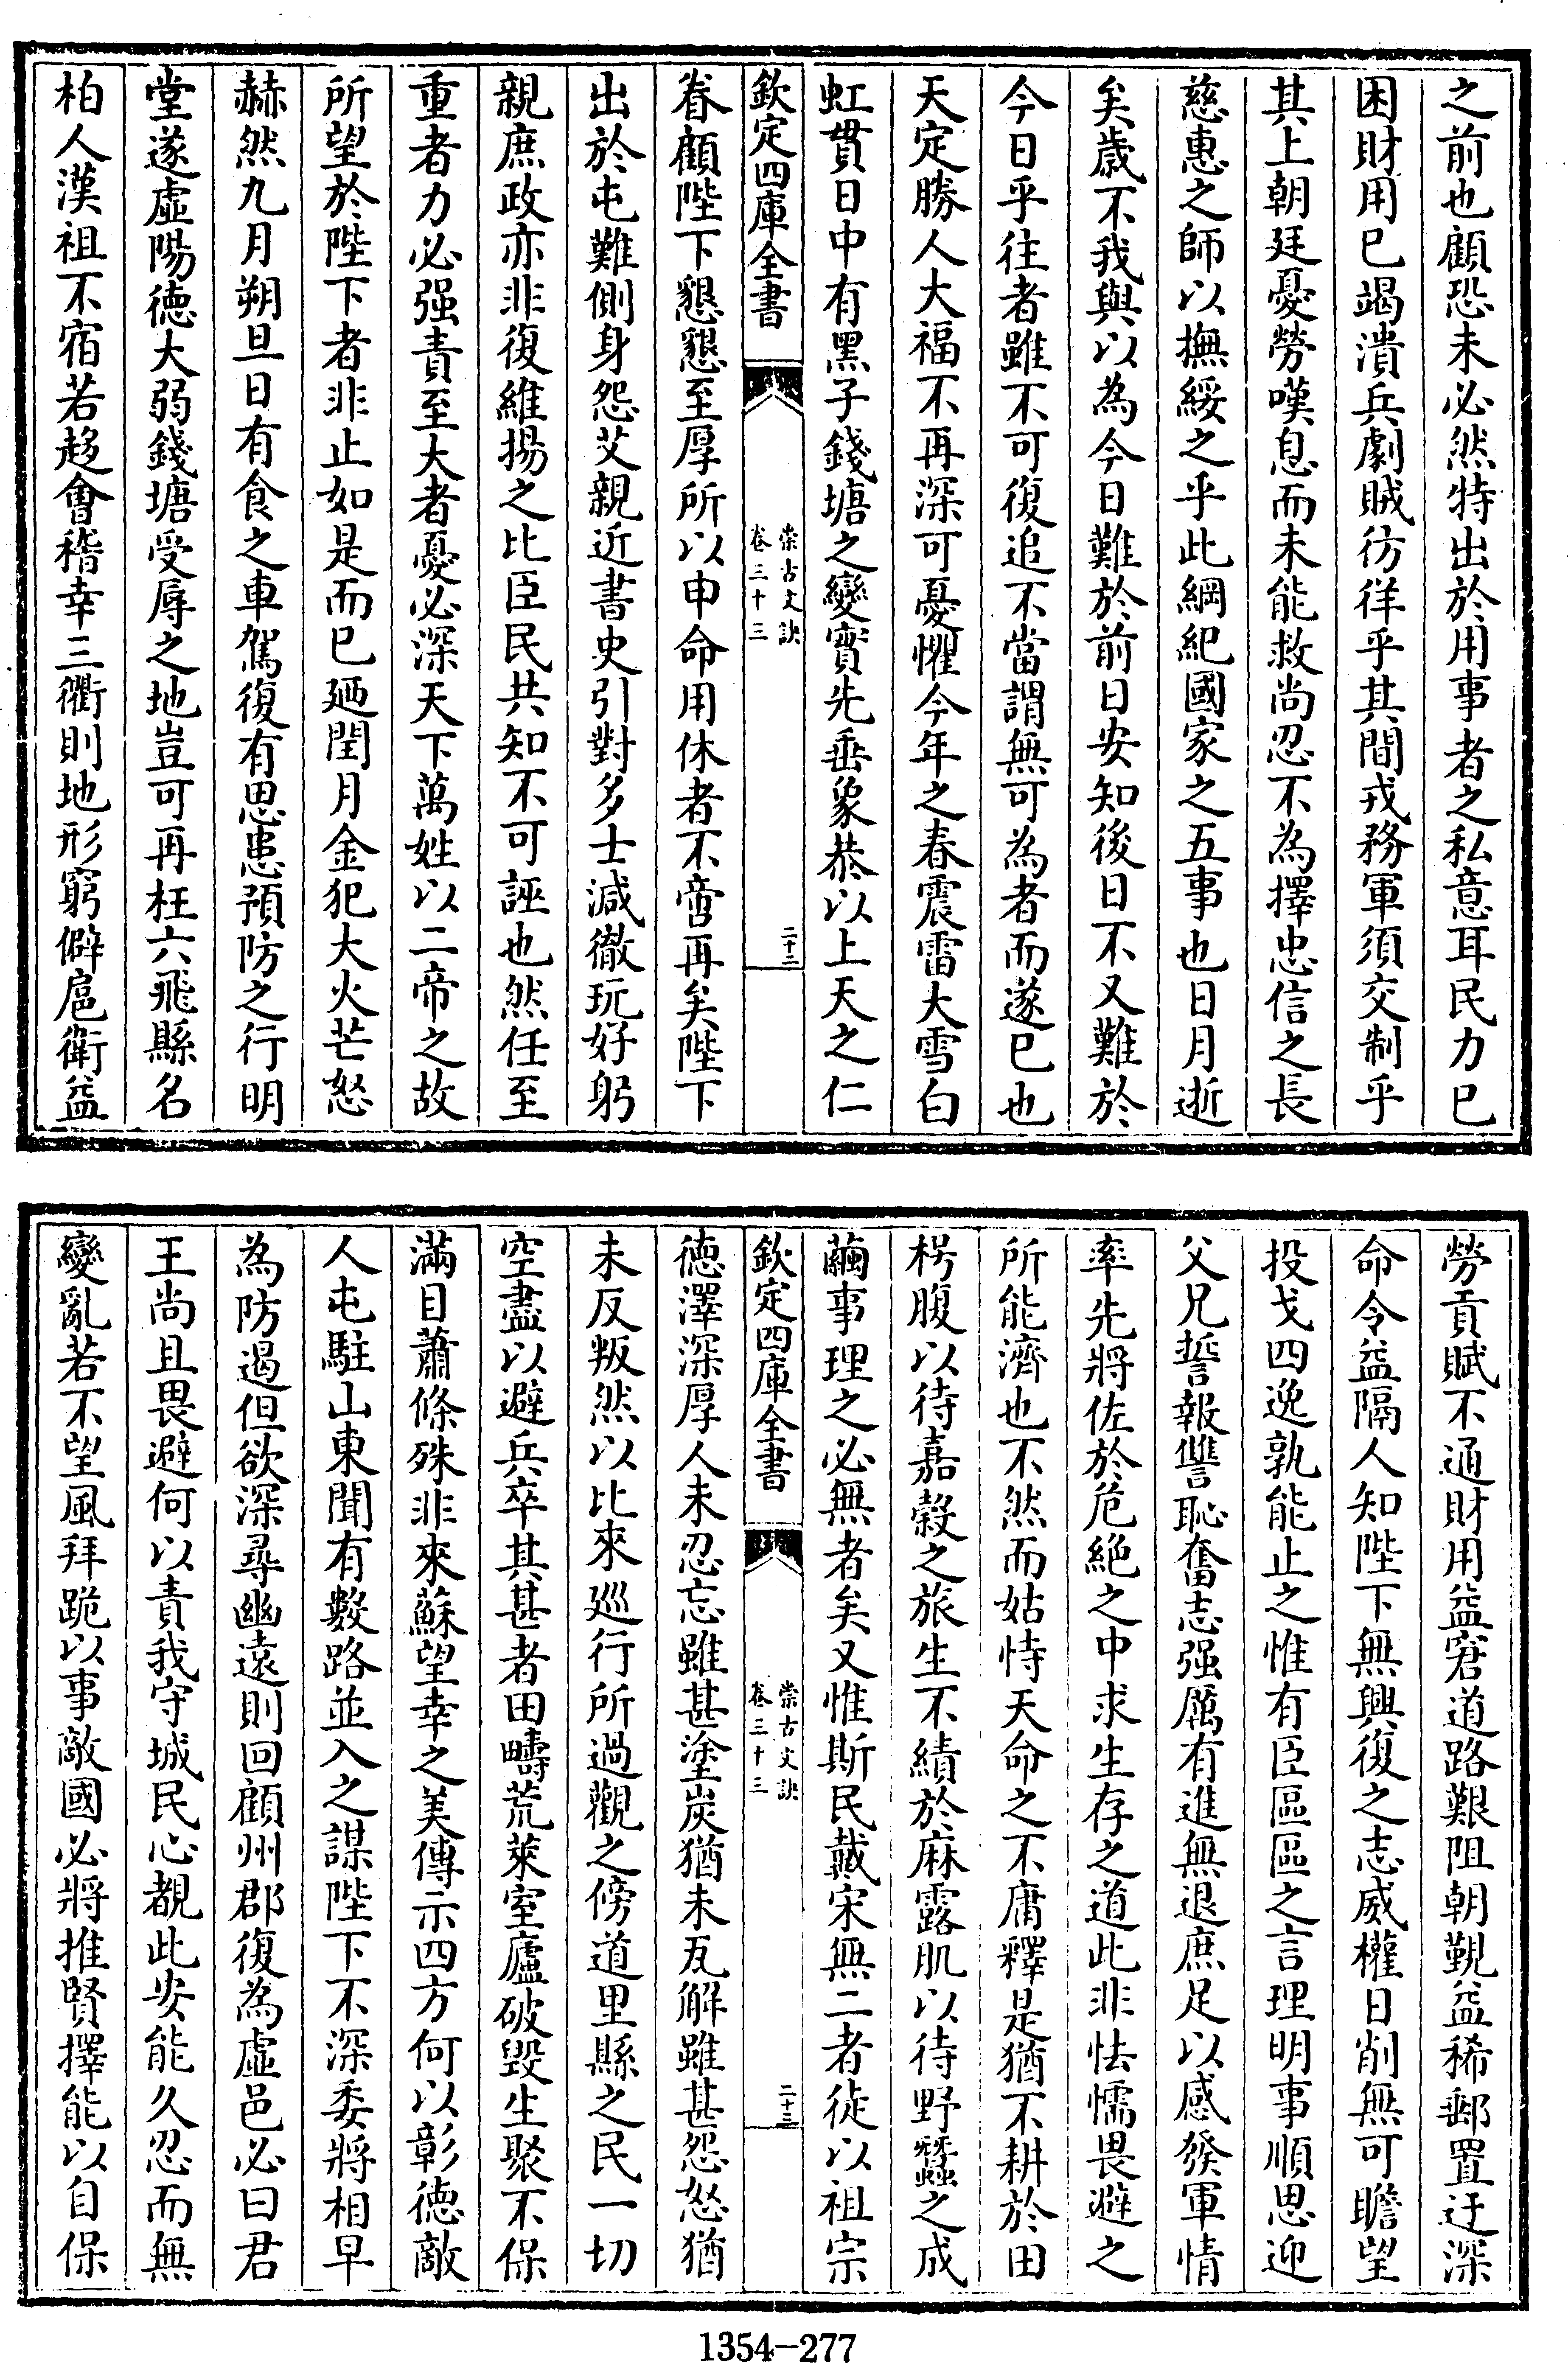 之前也顧恐未必然特出於用事者之私意耳民力已
困財用已竭潰兵劇賊彷徉乎其間戎務軍須交制乎
其上朝廷憂勞嘆息而未能救尚忍不為擇忠信之長
慈惠之師以撫綏之乎此綱紀國家之五事也日月逝
矣歲不我與以為今日難於前日安知後日不又難於
今日乎往者雖不可復追不當謂無可為者而遂已也
天定勝人大福不再深可憂懼今年之春震雷大雪白
虹貫日中有黑子錢塘之變實先垂象恭以上天之仁
欽定四庫全書
崇古文訣
卷三十三
二十二
眷顧陛下懇懇至厚所以申命用休者不啻再矣陛下
出於屯難側身怨艾親近書史引對多士減徹玩好躬
親庶政亦非復維揚之比臣民共知不可誣也然任至
重者力必强責至大者憂必深天下萬姓以二帝之故
所望於陛下者非止如是而已廼閏月金犯大火芒怒
赫然九月朔旦日有食之車駕復有思患預防之行明
堂遂虛陽德大弱錢塘受辱之地豈可再枉六飛縣名
柏人漢祖不宿若趍會稽幸三衢則地形窮僻扈衛益
勞貢賦不通財用益窘道路艱阻朝覲益稀郵置迂深
命令益隔人知陛下無興復之志威權日削無可瞻望
投戈四逸孰能止之惟有臣區區之言理明事順思迎
父兄誓報讐恥奮志强厲有進無退庶足以感發軍情
率先將佐於危絕之中求生存之道此非怯懦畏避之
所能濟也不然而姑恃天命之不庸釋是猶不耕於田
枵腹以待嘉穀之旅生不績於麻露肌以待野蠶之成
繭事理之必無者矣又惟斯民戴宋無二者徒以祖宗
欽定四庫全書
崇古文訣
卷三十三
二十三
德澤深厚人未忍忘雖甚塗炭猶未瓦解雖甚怨怒猶
未反叛然以比來廵行所過觀之傍道里縣之民一切
空盡以避兵卒其甚者田疇荒萊室廬破毀生聚不保
滿目蕭條殊非來蘇望幸之美傳示四方何以彰德敵
人屯駐山東聞有數路並入之謀陛下不深委將相早
為防遏但欲深尋幽遠則回顧州郡復為虛邑必曰君
王尚且畏避何以責我守城民心覩此安能久忍而無
變亂若不望風拜跪以事敵國必將推賢擇能以自保
1354-277